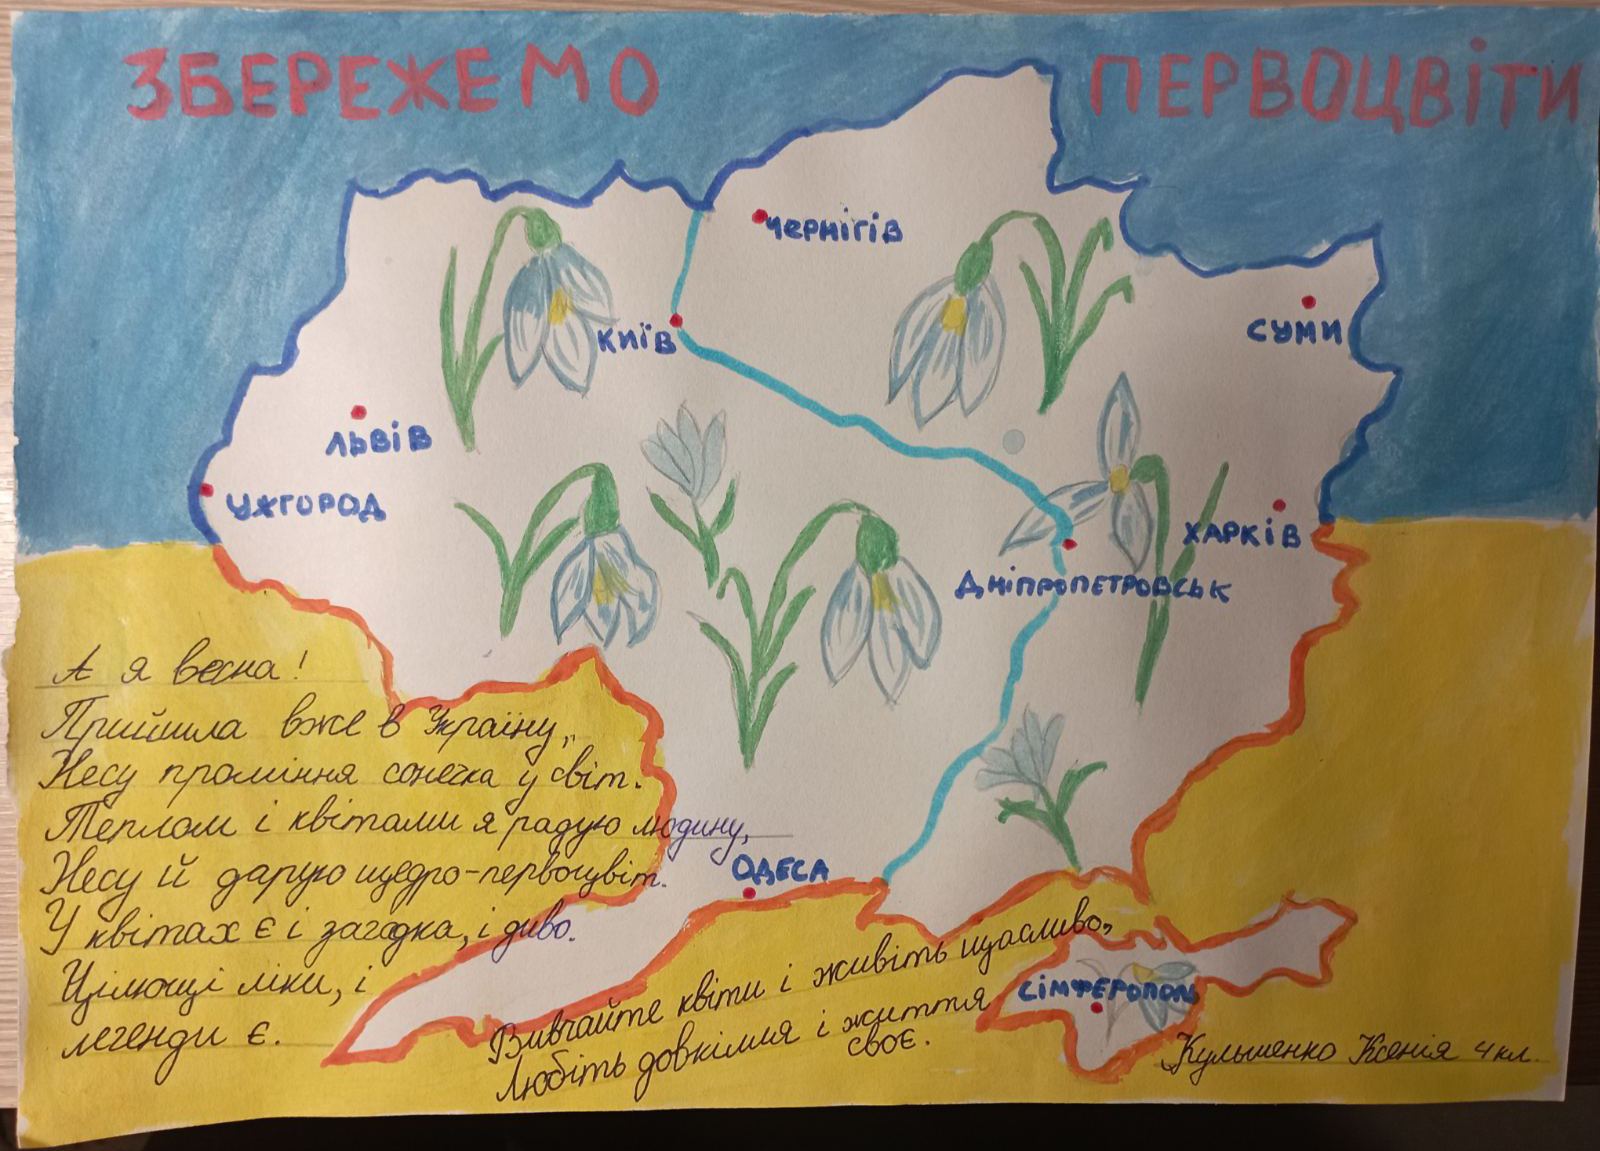 ЗБЕРЕЖЕМО ПЕРВОЦВІТИ
ЧЕРНІГІВ
СУМИ
КИЇВ
ЛЬВІВ
УЖГОРОД
ХАРКІВ
ДНІПРОПЕТРОВСЬК
ОДЕСА
СІМФЕРОПОЛЬ
А я весна!
Прийшла вже в Україну,
Несу проміння сонечка у світ.
Теплом і квітами я радую людину,
Несу й дарую щедро-первоцвіт.
У квітах є і загадка, і диво.
Цілющі ліки, і
легенди є.
Вивчайте квіти і живіть щасливо,
Любіть довкілля і життя
своє.
Кульшенко Ксенія 4 кл.